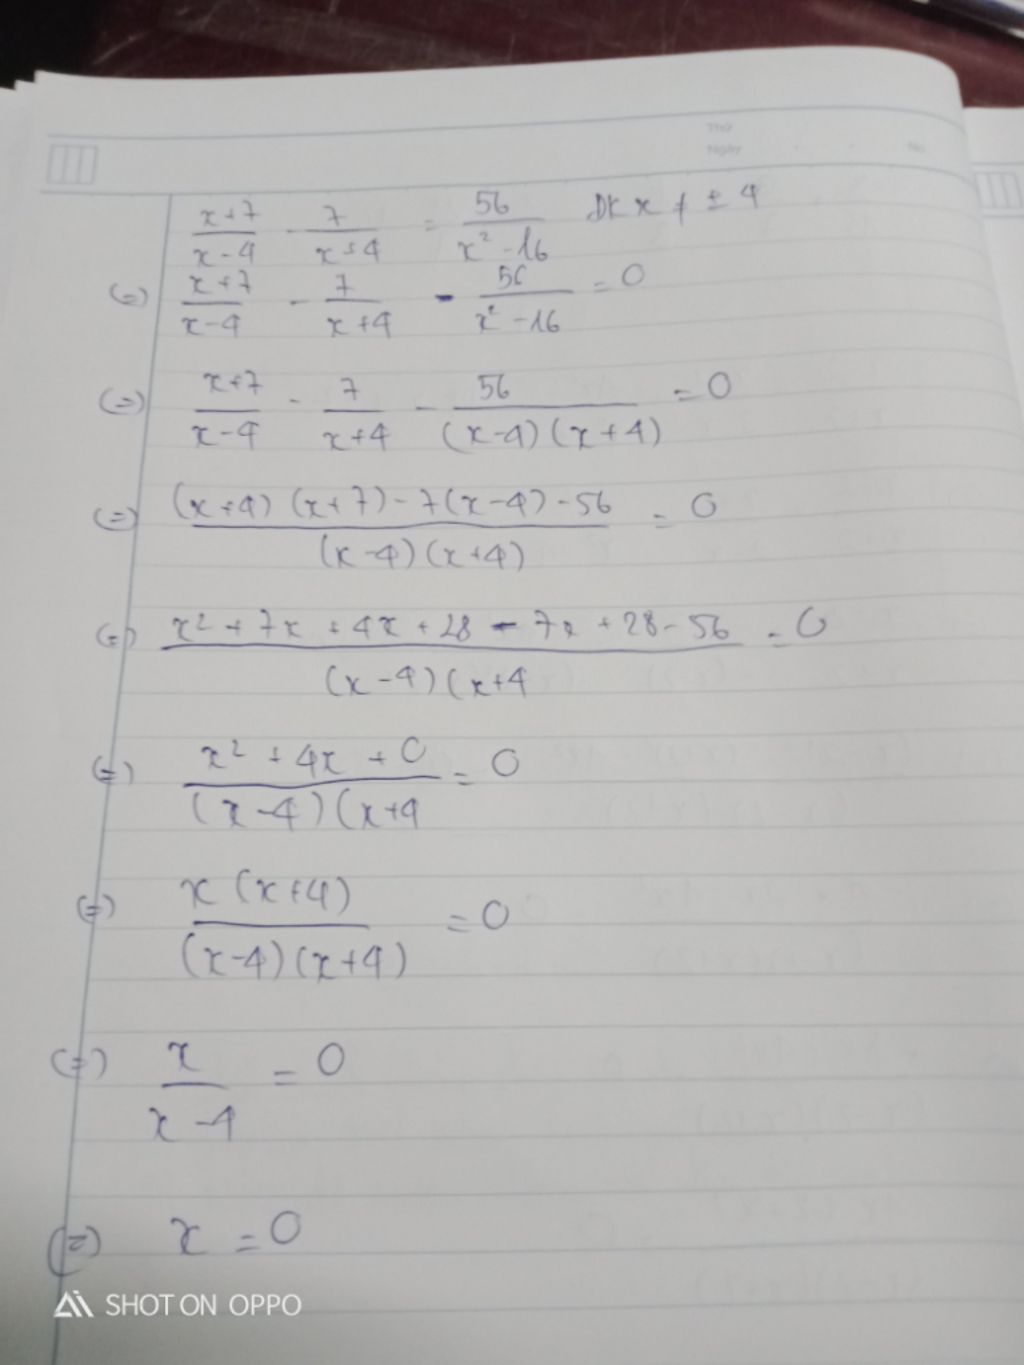 Thứ
Ngày No.
x+7/x-4 - 7/x+4 = 56/x²-16 ĐK x ≠ ± 4
(=) x+7/x-4 - 7/x+4 - 56/x²-16 = 0
(=) x+7/x-4 - 7/x+4 - 56/(x-4)(x+4) = 0
(=) (x+4)(x+7)-7(x-4)-56/(x-4)(x+4) = 0
(=) x²+7x+4x+28-7x+28-56/(x-4)(x+4 = 0
(=) x²+4x+0/(x-4)(x+4 = 0
(=) x(x+4)/(x-4)(x+4) = 0
(=) x/x-4 = 0
(=) x = 0
SHOT ON OPPO